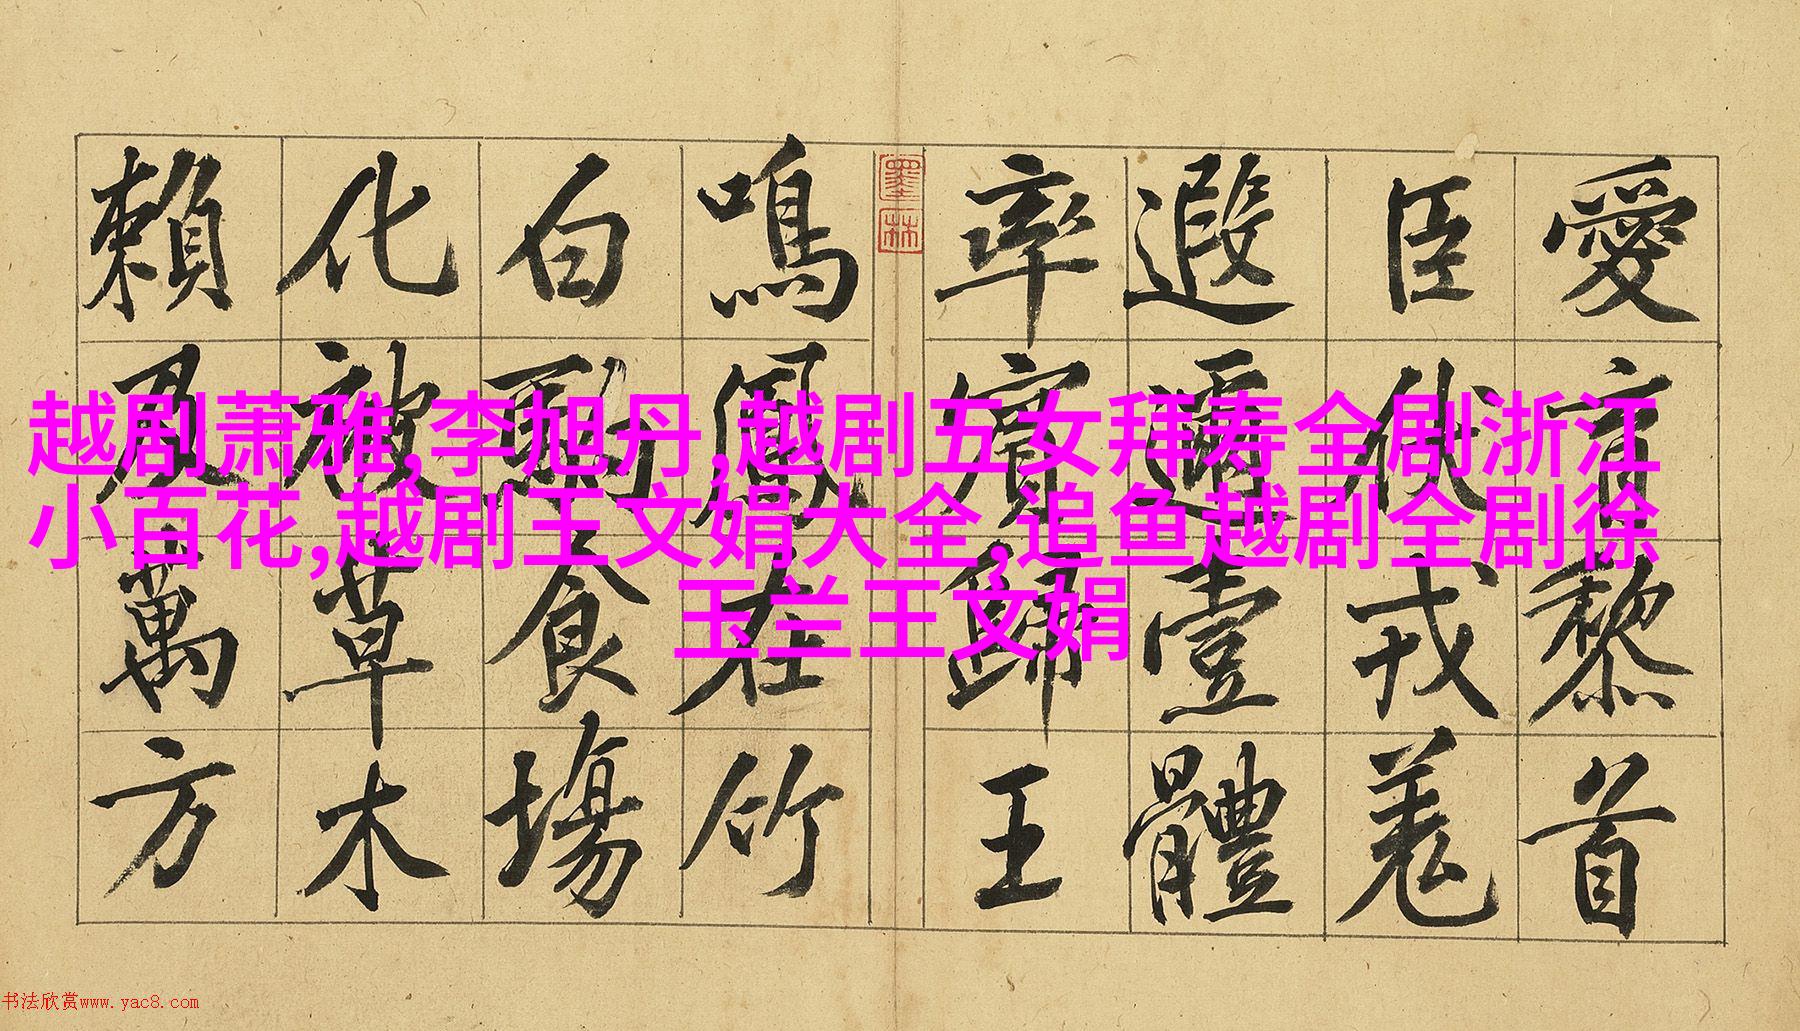 愛育黎首
臣伏戎羌
遐邇壹體
率賓歸王
墨林
鳴鳳在竹
白駒食場
化被草木
賴及萬方
越剧萧雅,李旭丹,越剧五女拜寿全剧浙江
小百花,越剧王文娟大全,追鱼越剧全剧徐
玉兰王文娟
书法欣赏www.yac8.com